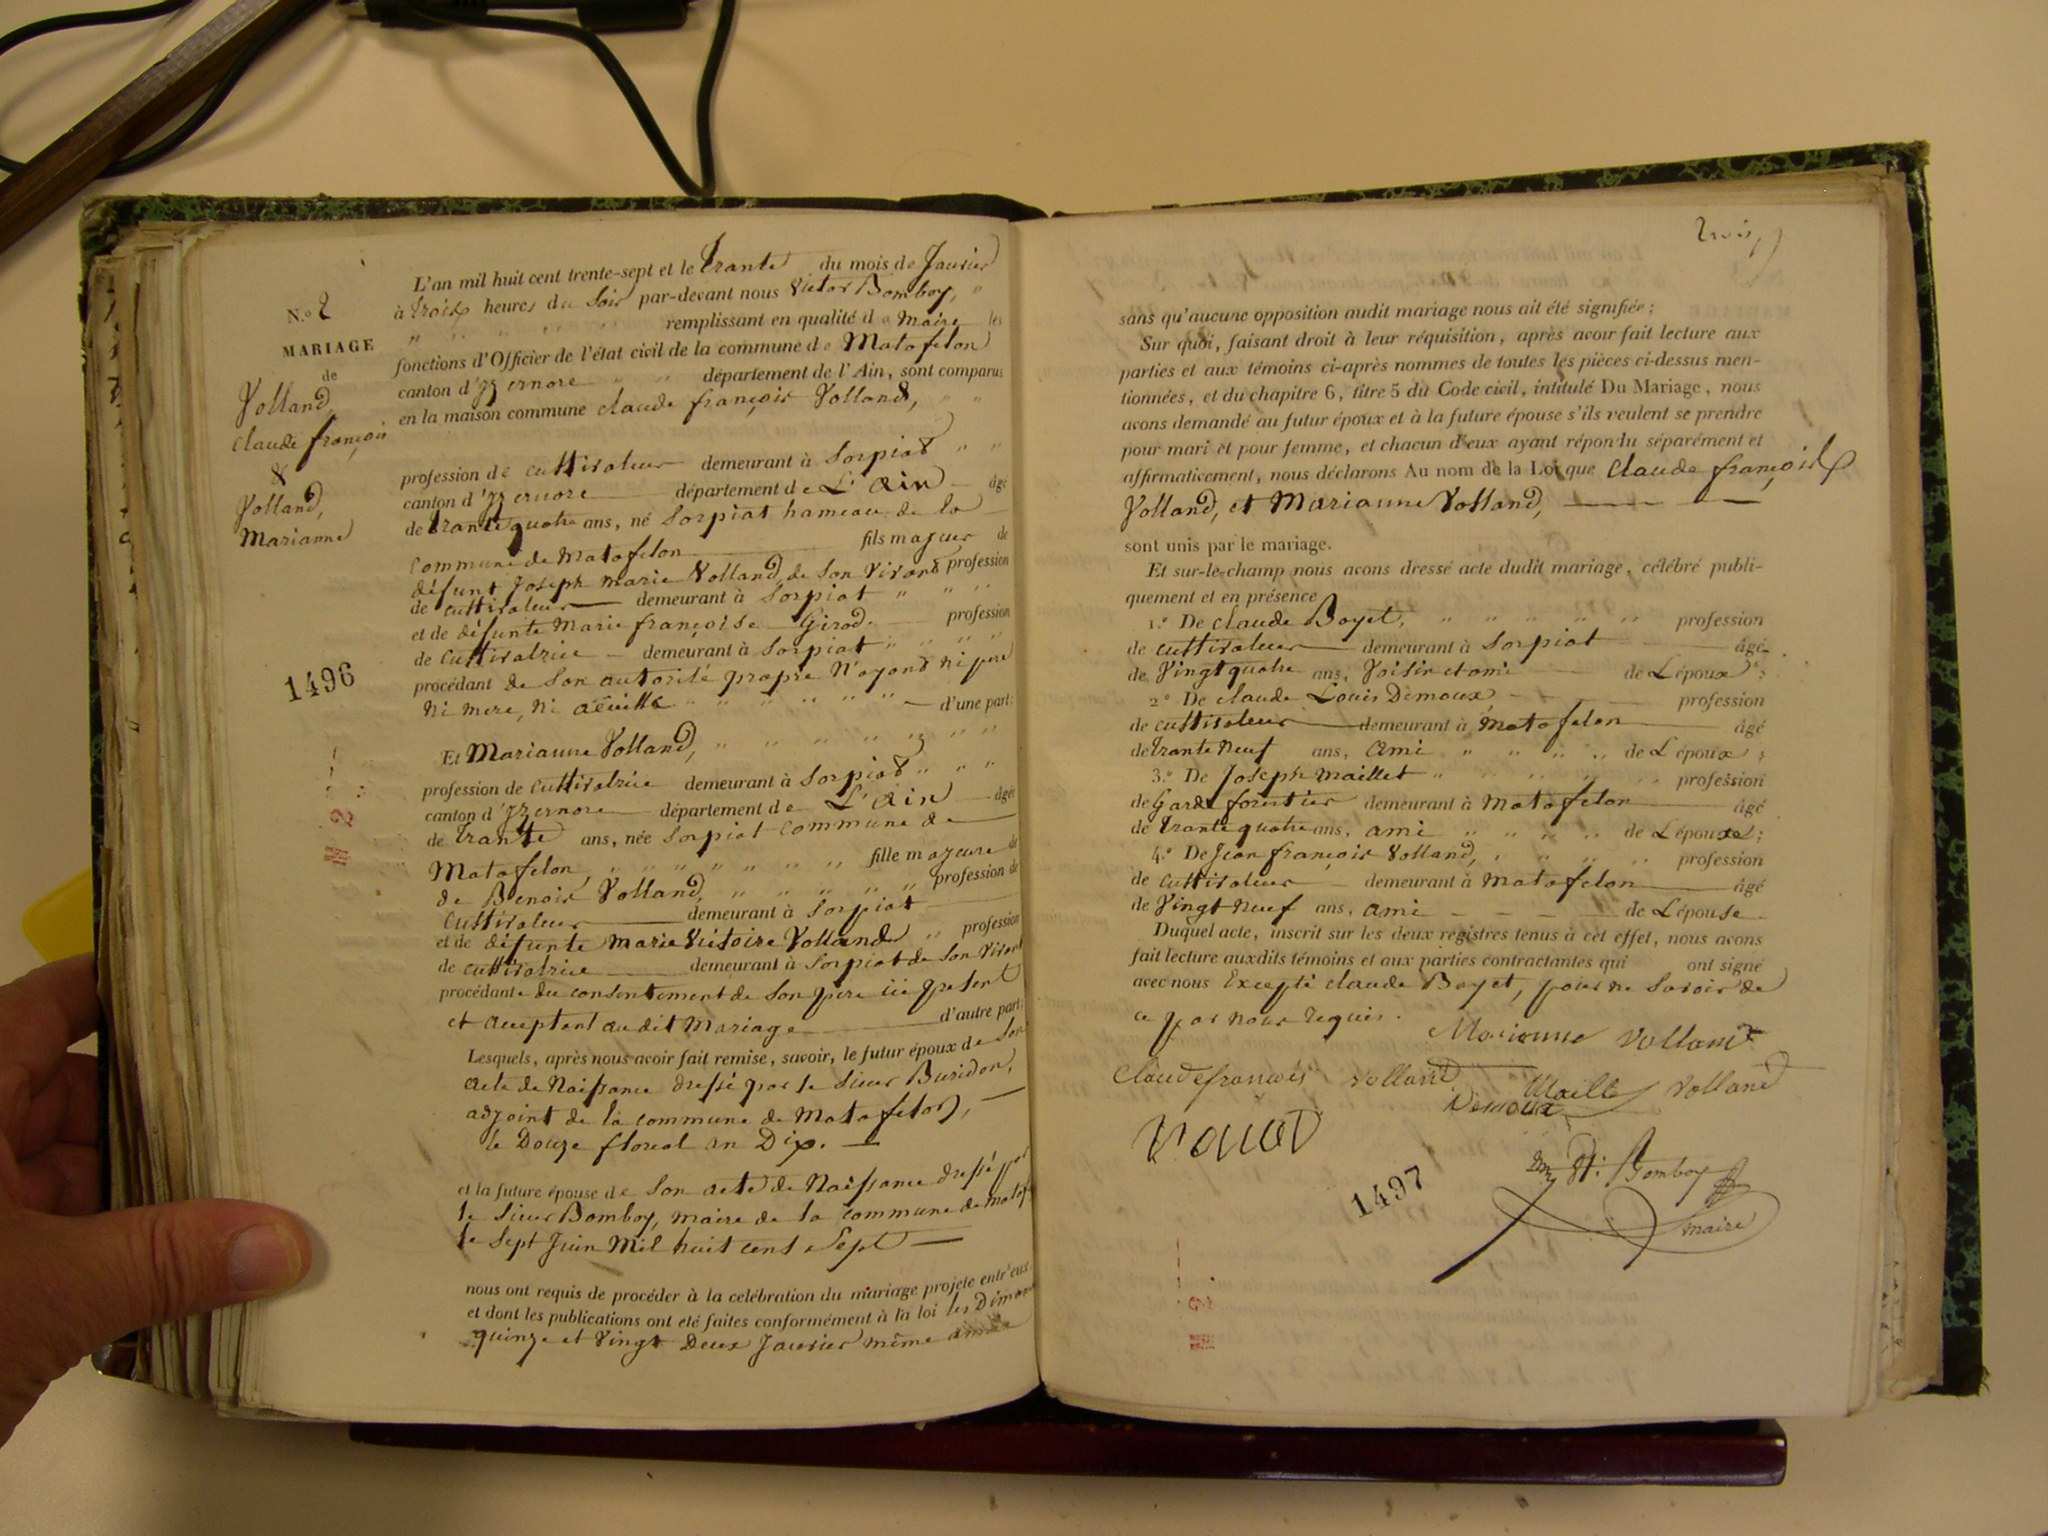 N.o 2
MARIAGE
de
Volland,
Claude françois
&
Volland,
Marianne
1496
L'an mil huit cent trente-sept et le trante du mois de Janvier
à trois heures du soir par-devant nous Victor Bomboy,
remplissant en qualité de Maire les
fonctions d'Officier de l'état civil de la commune de Matafelon
canton d'Yzernore département de l'Ain, sont comparus
en la maison commune Claude françois Volland,
profession de cultivateur demeurant à Sorpiat
canton d'Yzernore département de L'Ain âgé
de trante quatre ans, né Sorpiat hameau de la
Commune de Matafelon fils majeur de
défunt Joseph Marie Volland, de son vivant profession
de cultivateur demeurant à Sorpiat
et de défunte Marie françoise Girod. profession
de cultivatrice demeurant à Sorpiat
procédant de son autorité propre N'ayant ni pere
ni mere, ni aëuille d'une part;
Et Marianne Volland,
profession de cultivatrice demeurant à Sorpiat
canton d'Yzernore département de L'Ain âgée
de trante ans, née Sorpiat commune de
Matafelon, fille majeure de
de Benoit Volland, profession de
Cultivateur demeurant à Sorpiat
et de défunte Marie Victoire Volland profession
de cultivatrice demeurant à Sorpiat de son vivant
procédante du consentement de son pere ici present
et acceptant au dit Mariage d'autre part;
Lesquels, après nous avoir fait remise, savoir, le futur époux de son
acte de Naissance dressé par le sieur Buridon,
adjoint de la commune de Matafelon,
le Douze floreal an Dix.
et la future épouse de son acte de Naissance dressé par
le sieur Bomboy, maire de la commune de Mataf
le sept Juin Mil huit cent sept
nous ont requis de procéder à la celébration du mariage projeté entr'eux
et dont les publications ont été faites conformément à la loi les Diman
quinze et vingt Deux Janvier même année
trois
sans qu'aucune opposition audit mariage nous ait été signifiée;
Sur quoi, faisant droit à leur réquisition, après avoir fait lecture aux
parties et aux témoins ci-après nommes de toutes les pièces ci-dessus men-
tionnées, et du chapitre 6, titre 5 du Code civil, intitulé Du Mariage, nous
avons demandé au futur époux et à la future épouse s'ils veulent se prendre
pour mari et pour femme, et chacun d'eux ayant répondu séparément et
affirmativement, nous déclarons Au nom de la Loi que Claude françois
Volland, et Marianne Volland,
sont unis par le mariage.
Et sur-le-champ nous avons dressé acte dudit mariage, célébré publi-
quement et en présence
1.o De Claude Boyet, profession
de cultivateur demeurant à Sorpiat âgé
de Vingt quatre ans, Voisin et ami de L'époux;
2o De Claude Louis Demoux profession
de cultivateur demeurant à Matafelon âgé
de trante Neuf ans, ami de L'époux;
3.o De Joseph Maillet profession
de Garde forestier demeurant à Matafelon âgé
de trante quatre ans, ami de L'épouse;
4.o De Jean françois Volland, profession
de cultivateur demeurant à Matafelon âgé
de Vingt Neuf ans, ami de L'épouse
Duquel acte, inscrit sur les deux registres tenus à cet effet, nous avons
fait lecture auxdits témoins et aux parties contractantes qui ont signé
avec nous Excepté Claude Boyet, pour ne savoir de
ce par nous requis.
Marianne Volland
Claudefrançois Volland Maillet Volland
Demoux
Vt. Bomboy
maire
1497